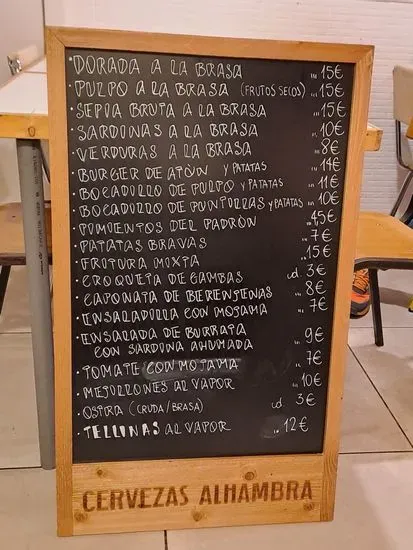 · DORADA A LA BRASA ... 15€
· PULPO A LA BRASA (FRUTOS SECOS) ... 15€
· SEPIA BRUTA A LA BRASA ... 15€
· SARDINAS A LA BRASA ... 10€
· VERDURAS A LA BRASA ... 8€
· BURGER DE ATÚN Y PATATAS ... 14€
· BOCADILLO DE PULPO Y PATATAS ... 11€
· BOCADILLO DE PUNTILLAS Y PATATAS ... 10€
· PIMIENTOS DEL PADRÓN ... 4,5€
· PATATAS BRAVAS ... 7€
· FRITURA MIXTA ... 15€
· CROQUETA DE GAMBAS ud 3€
· CAPONATA DE BERENJENAS ... 8€
· ENSALADILLA CON MOJAMA ... 7€
· ENSALADA DE BURRATA
CON SARDINA AHUMADA ... 9€
· TOMATE CON MOJAMA ... 7€
· MEJILLONES AL VAPOR ... 10€
· OSTRA (CRUDA/BRASA) ud 3€
· TELLINAS AL VAPOR ... 12€
CERVEZAS ALHAMBRA